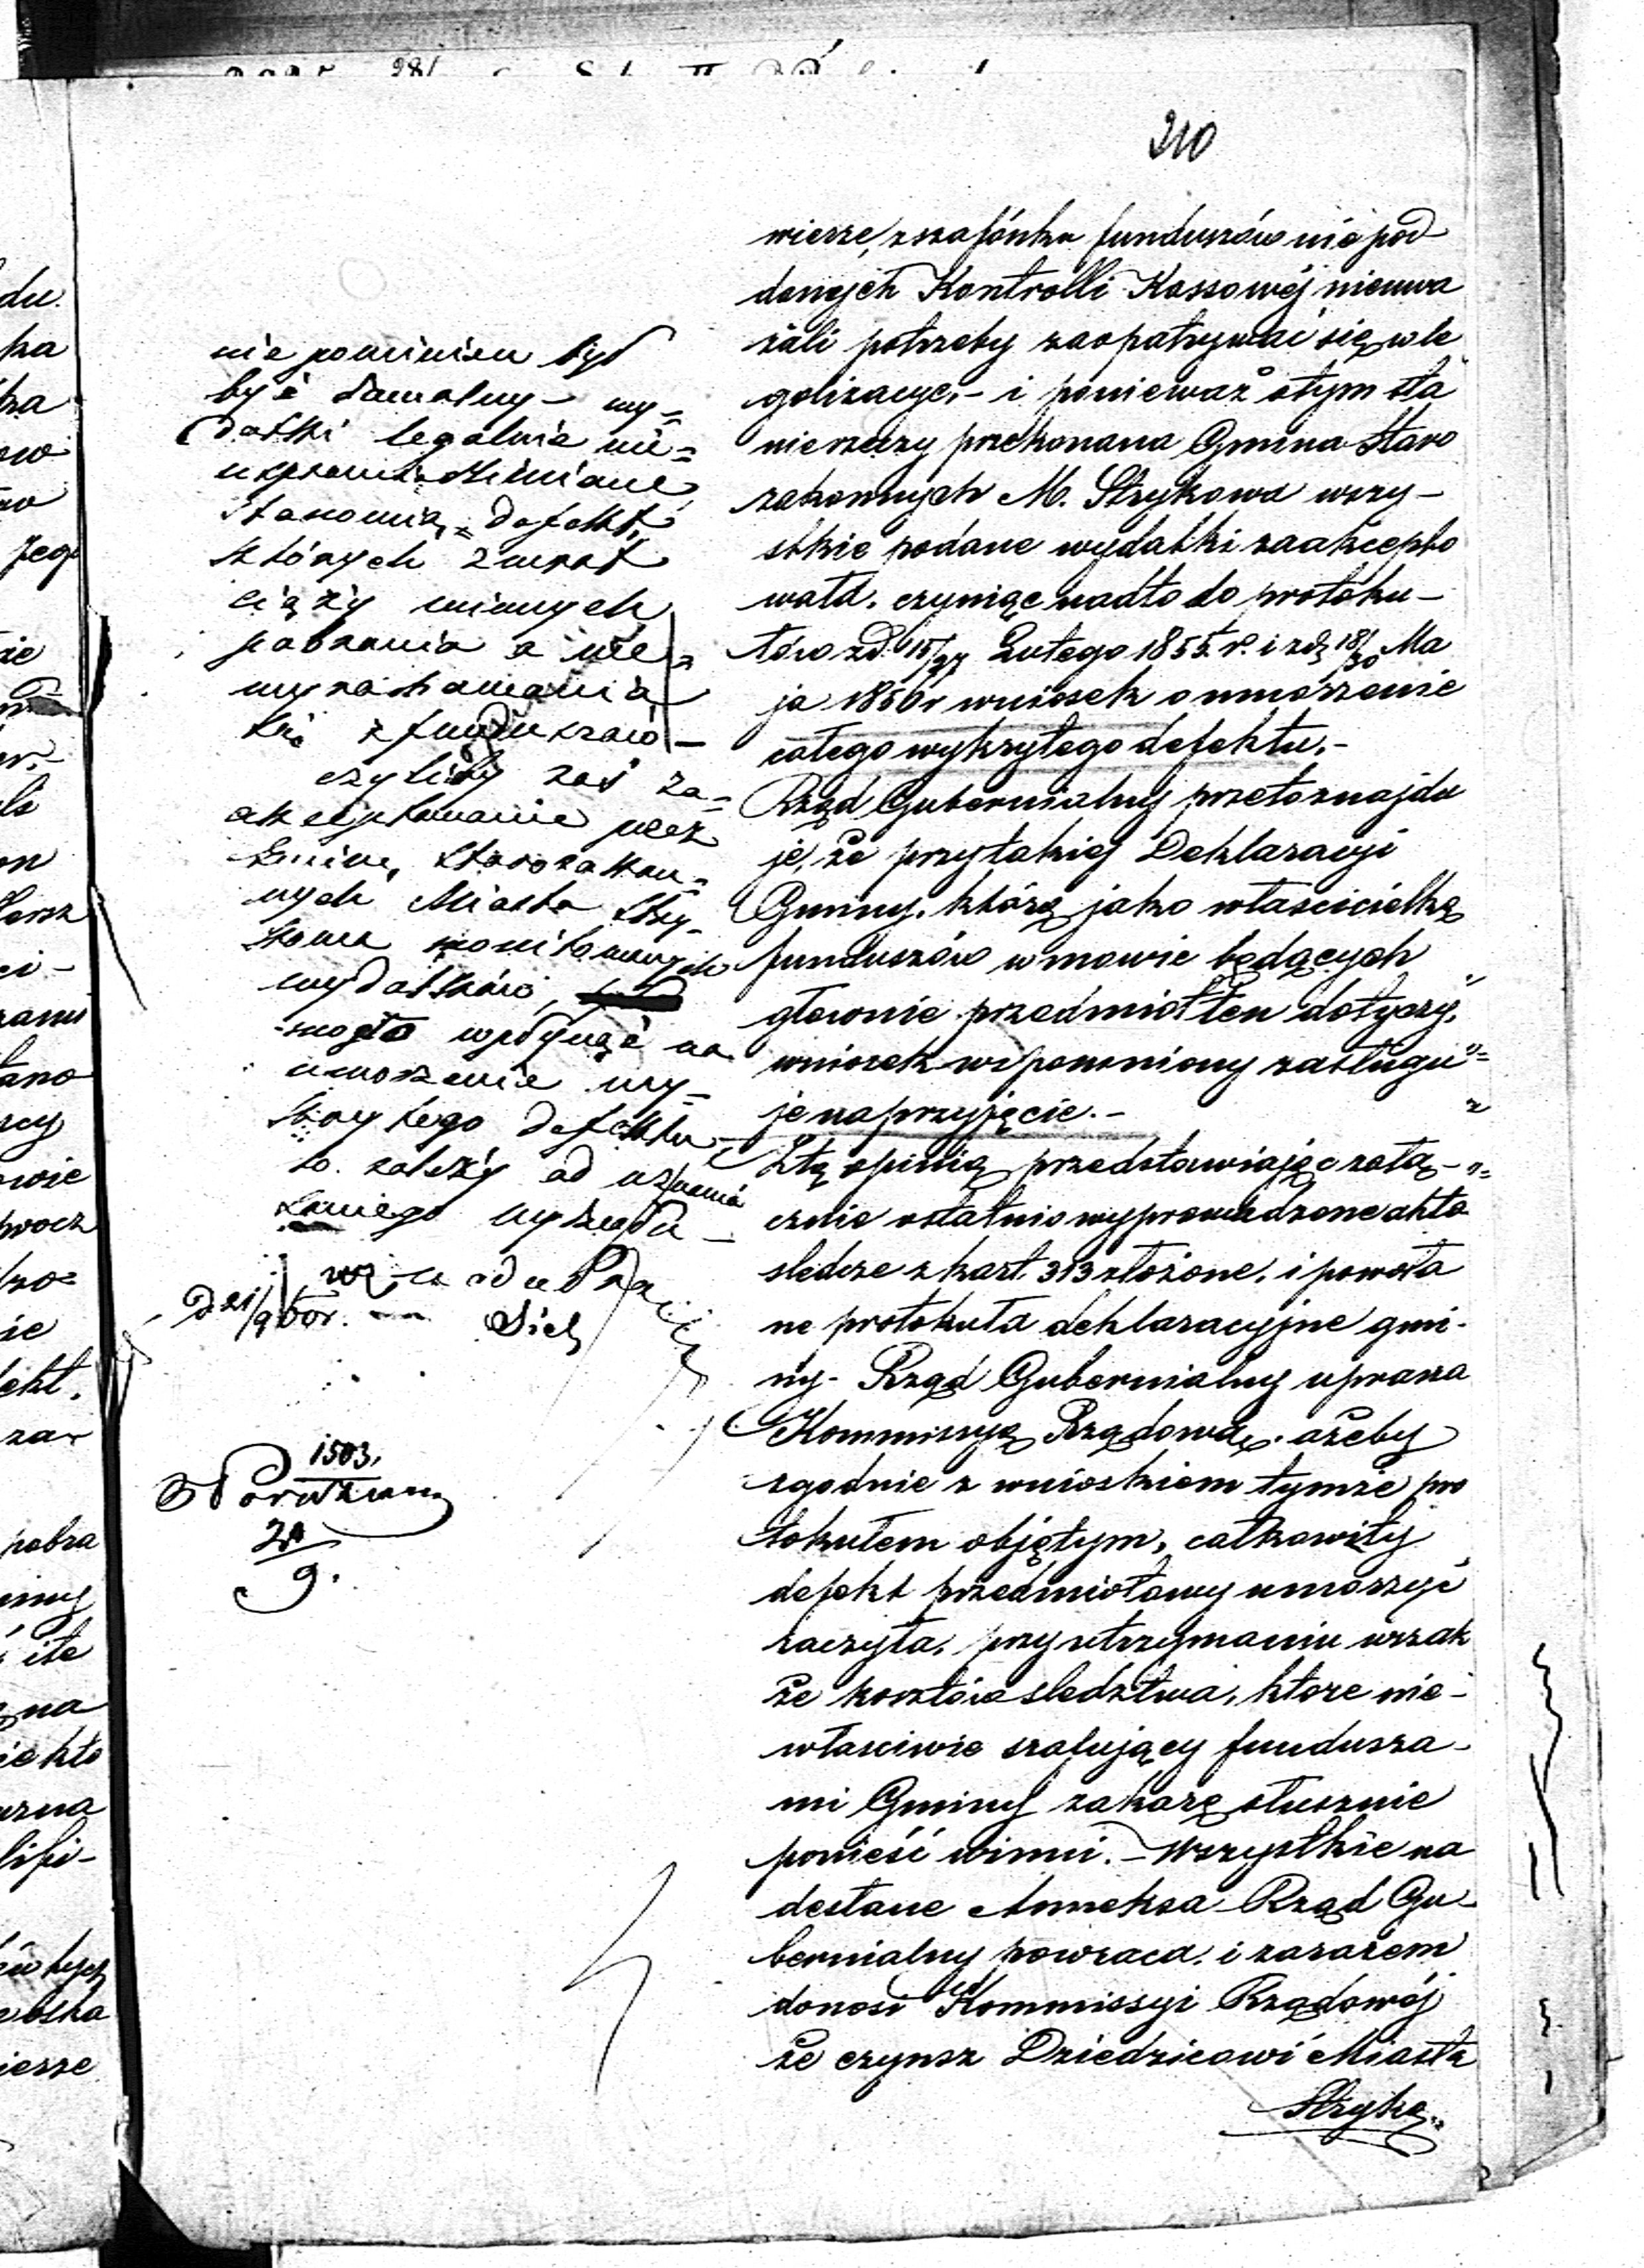 210
wierze, z szafunku funduszów nie pod
danych Kontrolli Kassowéj nieuwa
żali potrzeby zaopatrywać się w le
galizacye, - i ponieważ o tym sta
nie rzeczy przekonana Gmina Staro
zakonnych M. Strykowa wszy-
stkie podane wydatki zaakcepto
wała, czyniąc nadto do protoku-
łów z d. 15/27 Lutego 1855 r. i z d. 18/30 Ma
ja 1856 r wniosek o umorzenie
całego wykrytego defektu. -
Rząd Gubernialny przeto znajdu
je, że przy takiej Deklaracyi
Gminy, którą jako właścicielkę
funduszów w mowie będących
głównie przedmiot ten dotyczy,
wniosek wspomniony zasługu=
je na przyjęcie. -
Z tą opinią przedstawiając załą-
cznie ostatnio wyprowadzone akta
śledcze z kart. 313 złożone, i powoła
ne protokuła deklaracyjne gmi-
ny - Rząd Gubernialny uprasza
Kommissyą Rządową, ażeby
zgodnie z wnioskiem tymże pro
tokułem objętym, całkowity
defekt przedmiotowy umorzyć
raczyła, przy utrzymaniu wszak
że kosztów śledztwa, które nie-
właściwie szafujący fundusza-
mi Gminy za karę słusznie
ponieść winni. - Wszystkie na
desłane Annexa Rząd Gu-
bernialny powraca, i zarazem
donosi Kommissyi Rządowéj
że czynsz Dziedzicowi Miasta
Stryko
nie powinien był
być - wy=
datki legalnie nie=
usprawiedliwione
stanowią defekt,
których zwrot
ciąży winnych
pobrania a nie
wyrachowania
się z funduszów -
czyliby zaś za=
akceptowanie przez
Gminę Starozakon=
nych Miasta Stry-
kowa monitowanych
wydatków,
mogło wpłynąć na
umorzenie wy=
krytego defektu,
to zależy od uznania
tamiego wydziału -
1503.
9.